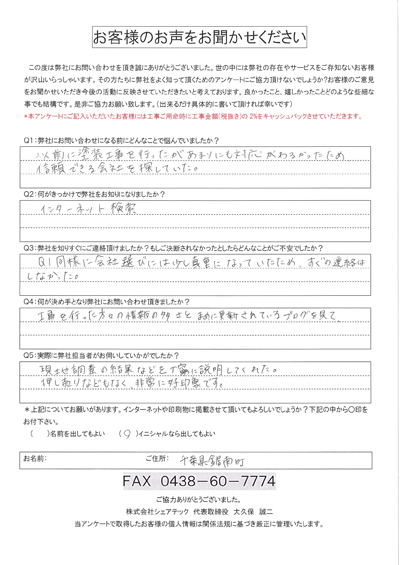 お客様のお声をお聞かせください
この度は弊社にお問い合わせを頂き誠にありがとうございました。世の中には弊社の存在やサービスをご存知ないお客様
が沢山いらっしゃいます。その方たちに弊社をよく知って頂くためのアンケートにご協力頂けないでしょうか?お客様のご意見
をお聞かせいただき今後の活動に反映させていただきたいと思っております。良かったこと、嬉しかったことどのような些細な
事でも結構です。是非ご協力お願い致します。(出来るだけ具体的に書いて頂ければ幸いです)
*本アンケートにご記入いただいたお客様には工事ご用命時に工事金額(税抜き)の2%をキャッシュバックさせていただきます。
Q1:弊社にお問い合わせになる前にどんなことで悩んでいましたか?
以前に塗装工事を行ったがあまりにも対応がわるかったため
信頼できる会社を探していた。
Q2:何がきっかけで弊社をお知りになりましたか?
インターネット検索
Q3:弊社を知りすぐにご連絡頂けましたか?もしご決断されなかったとしたらどんなことがご不安でしたか?
Q1同様に会社選びには少し真重になっていたため、すぐの連絡は
しなかった。
Q4:何が決め手となり弊社にお問い合わせ頂きましたか?
工事を行った方々の情報の多さとまめに更新されているブログを見て
Q5:実際に弊社担当者がお伺いしていかがでしたか?
現地調査の結果などを丁寧に説明してくれた。
押し売りなどもなく、非常に好印象です。
*上記についてお願いがあります。インターネットや印刷物に掲載させて頂いてもよろしいでしょうか?下記の中から〇印を
お付け下さい。
( )名前を出してもよい (〇)イニシャルなら出してもよい
お名前: ご住所: 千葉県鋸南町
FAX 0438-60-7774
ご協力ありがとうございました。
株式会社シェアテック 代表取締役 大久保 誠二
当アンケートで取得したお客様の個人情報は関係法規に基づき厳正に管理いたします。